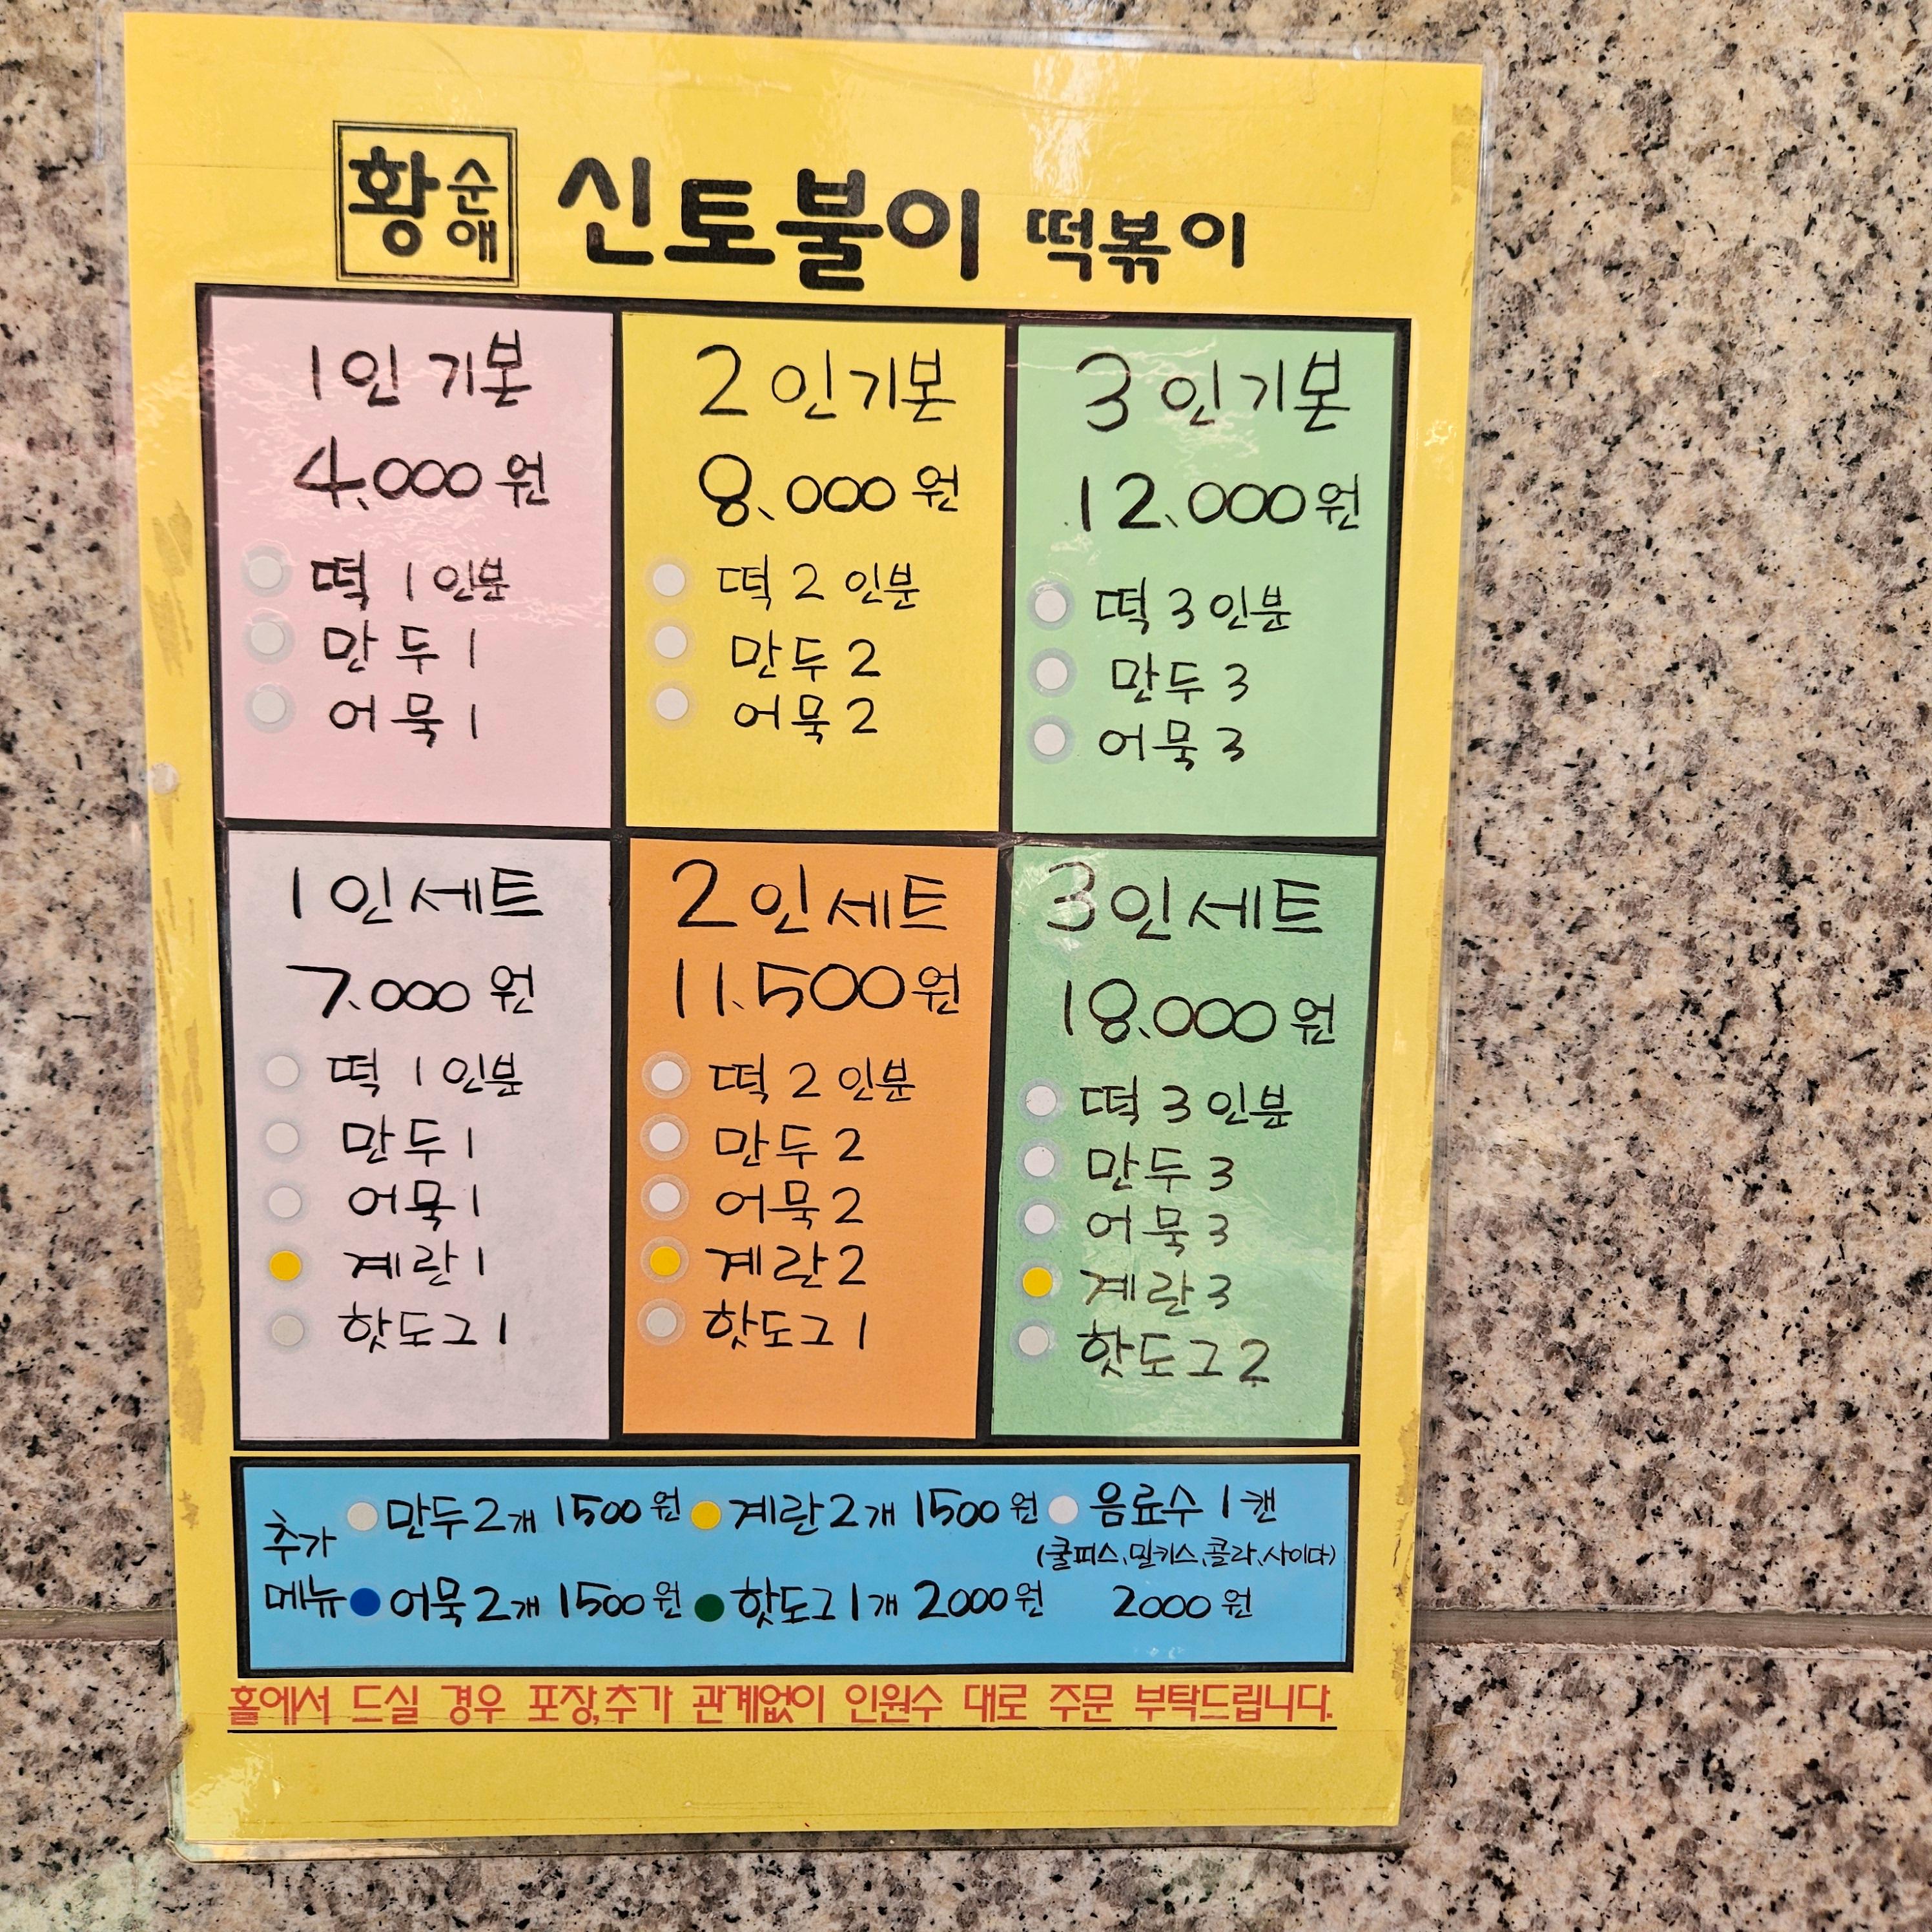 황순애 신토불이 떡볶이
1인 기본
4,000원
떡 1인분
만두 1
어묵 1
2인 기본
8,000원
떡 2인분
만두 2
어묵 2
3인 기본
12,000원
떡 3인분
만두 3
어묵 3
1인 세트
7,000원
떡 1인분
만두 1
어묵 1
계란 1
핫도그 1
2인 세트
11,500원
떡 2인분
만두 2
어묵 2
계란 2
핫도그 1
3인 세트
18,000원
떡 3인분
만두 3
어묵 3
계란 3
핫도그 2
추가 메뉴
만두 2개 1500원 계란 2개 1500원 음료수 1캔
(쿨피스,밀키스,콜라,사이다)
어묵 2개 1500원 핫도그 1개 2000원 2000원
홀에서 드실 경우 포장,추가 관계없이 인원수 대로 주문 부탁드립니다.